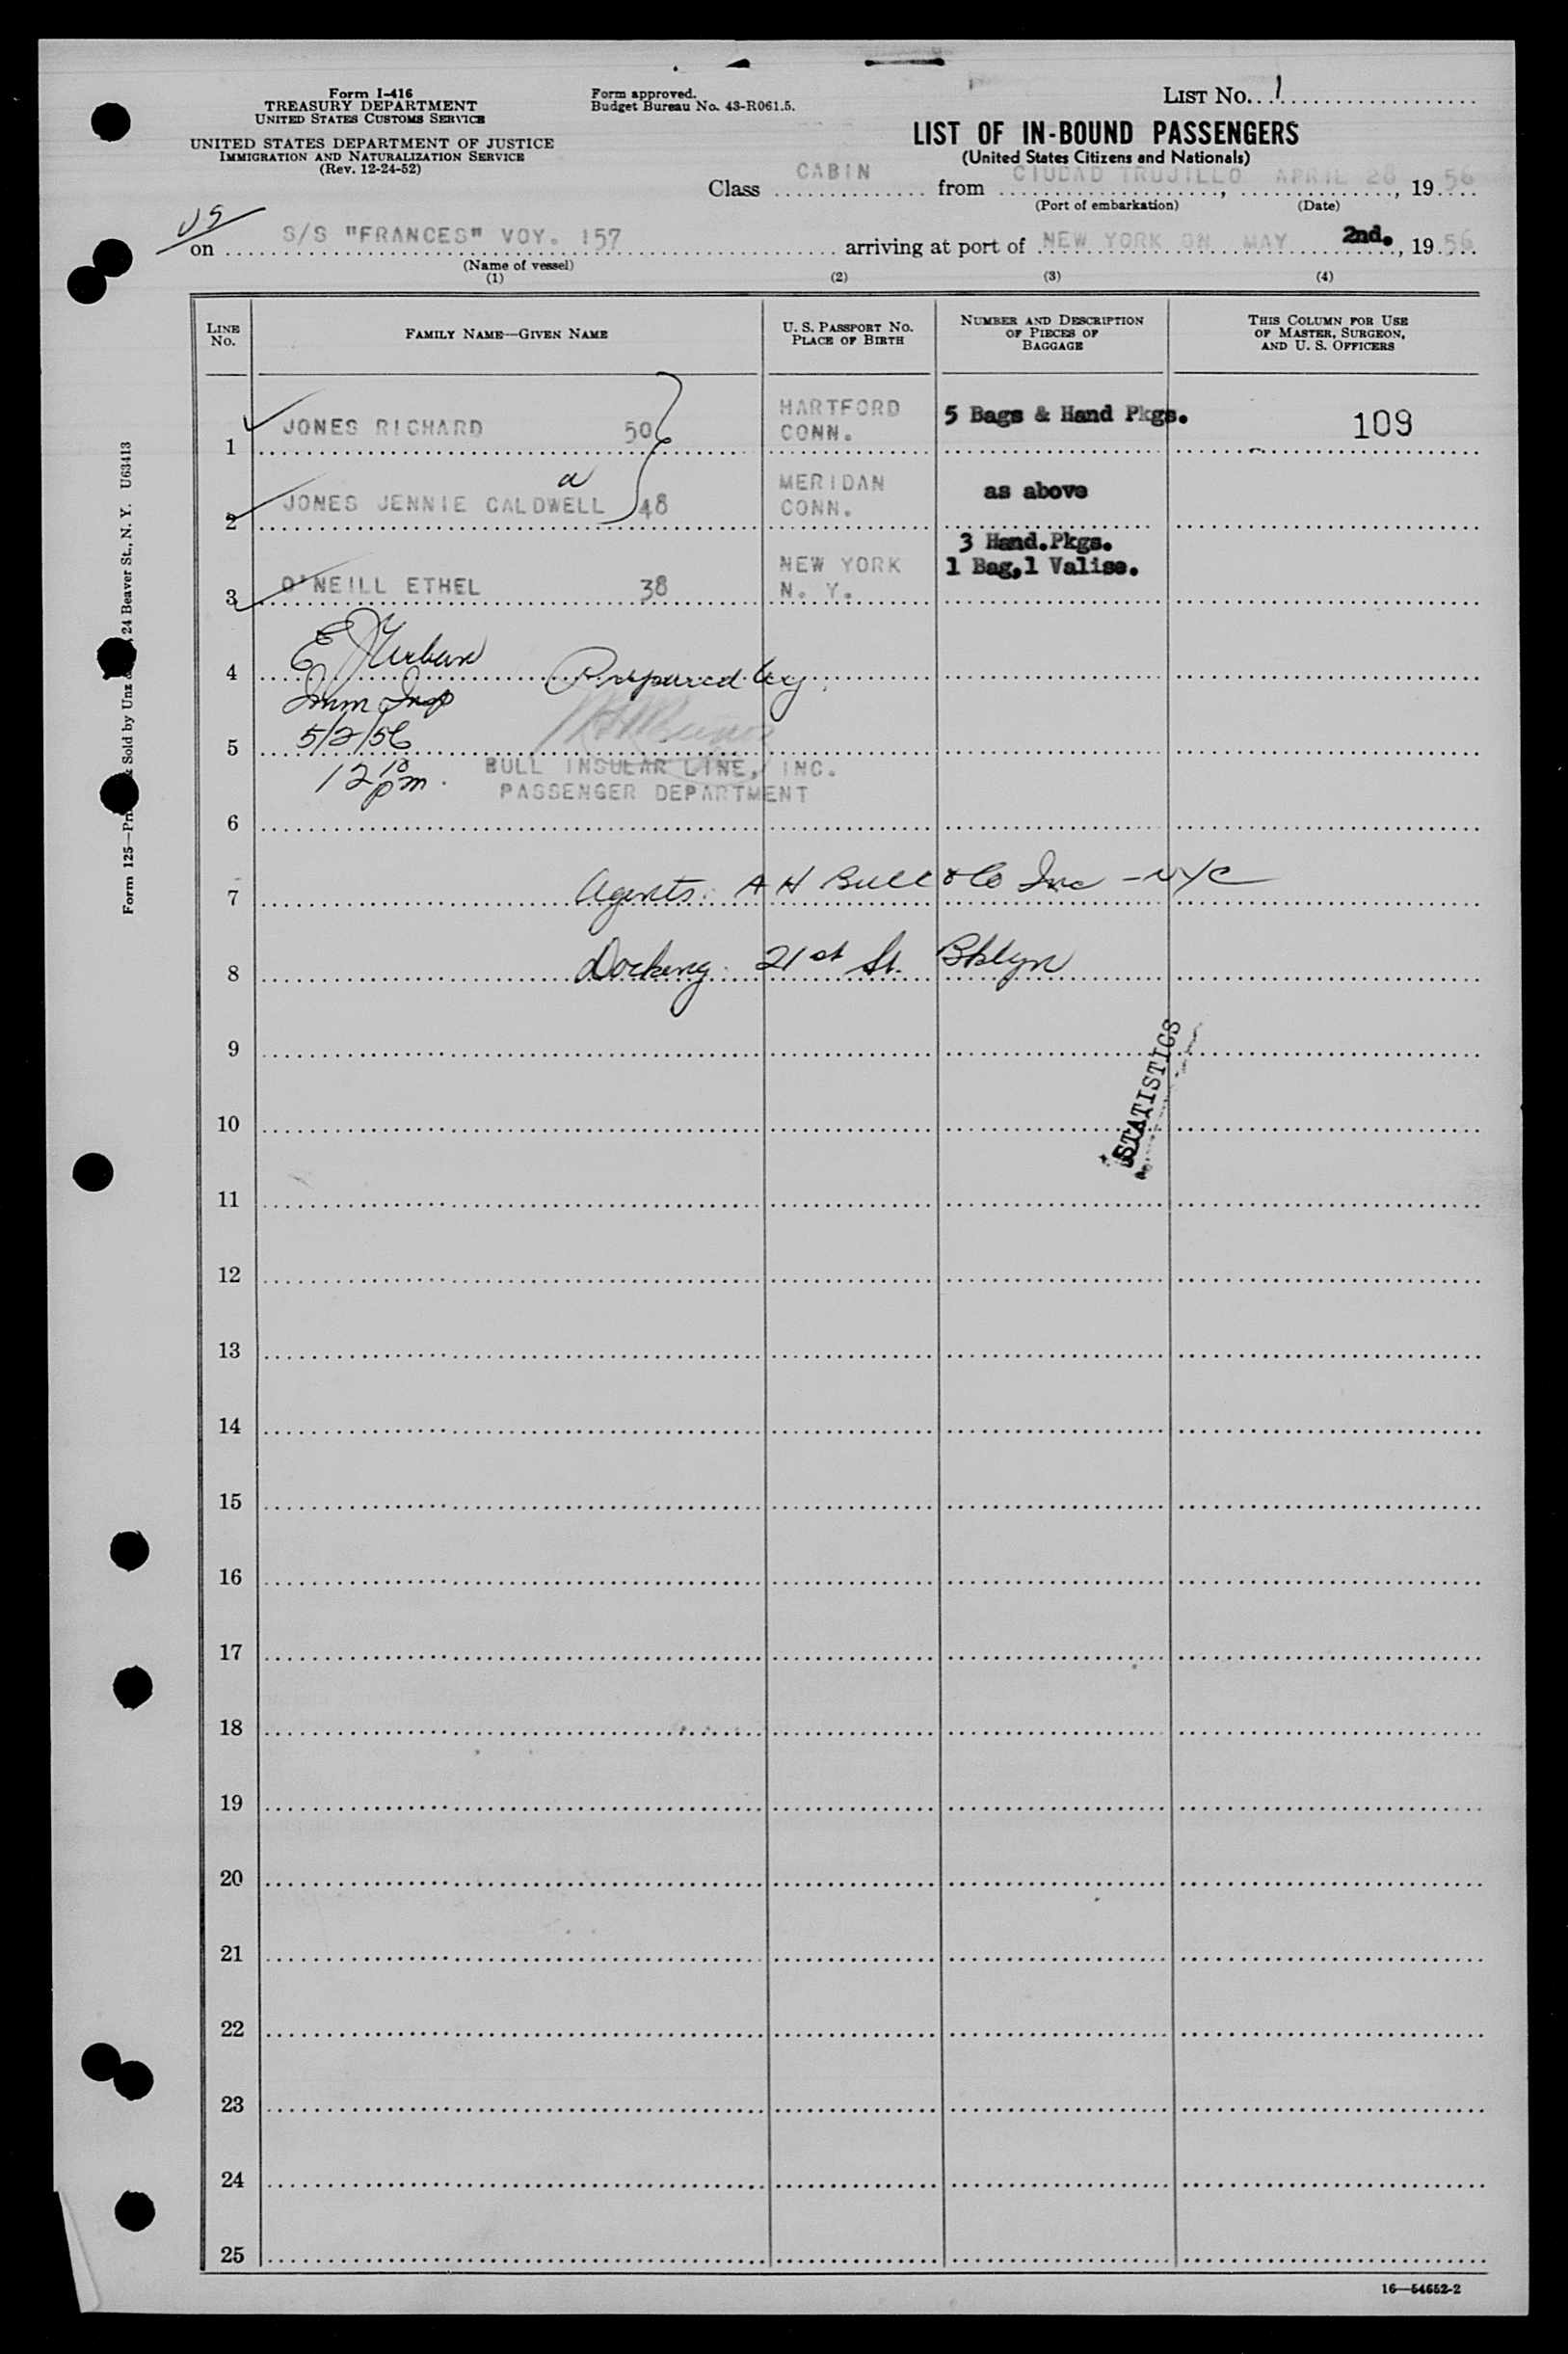 Form I-416
TREASURY DEPARTMENT
UNITED STATES CUSTOMS SERVICE
UNITED STATES DEPARTMENT OF JUSTICE
IMMIGRATION AND NATURALIZATION SERVICE
(Rev. 12-24-52)
Form approved.
Budget Bureau No. 43-R061.5.
LIST No. 1
LIST OF IN-BOUND PASSENGERS
(United States Citizens and Nationals)
Class CABIN from CIUDAD TRUJILLO, APRIL 28, 1956
(Port of embarkation) (Date)
on S/S "FRANCES" VOY. 157 arriving at port of NEW YORK ON MAY 2nd., 1956
(Name of vessel)
(1) (2) (3) (4)
LINE No. FAMILY NAME—GIVEN NAME U. S. PASSPORT No. PLACE OF BIRTH NUMBER AND DESCRIPTION OF PIECES OF BAGGAGE THIS COLUMN FOR USE OF MASTER, SURGEON, AND U. S. OFFICERS
1 JONES RICHARD 50 HARTFORD CONN. 5 Bags & Hand Pkgs. 109
2 JONES JENNIE CALDWELL 48 MERIDAN CONN. as above
3 O'NEILL ETHEL 38 NEW YORK N. Y. 3 Hand.Pkgs. 1 Bag,1 Valise.
4 Prepared by
Imm Insp
5 5/2/56
12 10 pm.
BULL INSULAR LINE, INC.
PASSENGER DEPARTMENT
6
7 Agents: A H Bull & Co Inc - NYC
8 Docking: 21st St. Bklyn
9
STATISTICS
10
11
12
13
14
15
16
17
18
19
20
21
22
23
24
25
16—54652-2
Form 125— Sold by Unz 24 Beaver St., N. Y. U63413